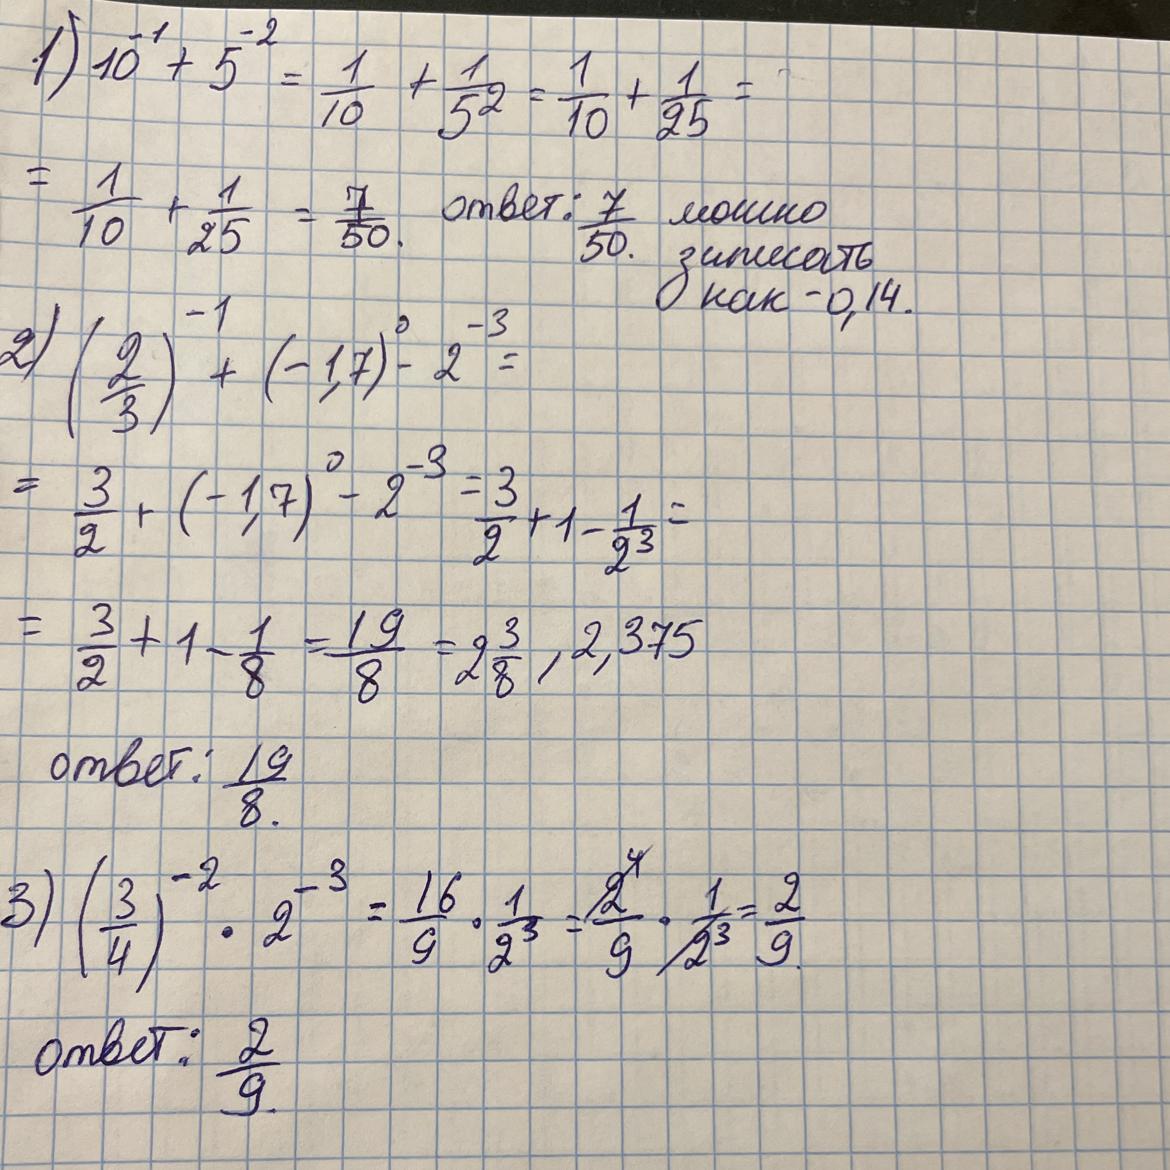 1) 10⁻¹ + 5⁻² = 1/10 + 1/5² = 1/10 + 1/25 =
= 1/10 + 1/25 = 7/50. ответ: 7/50. можно
записать
как - 0,14.
2) (2/3)⁻¹ + (-1,7)⁰ - 2⁻³ =
= 3/2 + (-1,7)⁰ - 2⁻³ = 3/2 + 1 - 1/2³ =
= 3/2 + 1 - 1/8 = 19/8 = 2 3/8, 2,375
ответ: 19/8.
3) (3/4)⁻² · 2⁻³ = 16/9 · 1/2³ = 2⁴/9 · 1/2³ = 2/9.
ответ: 2/9.